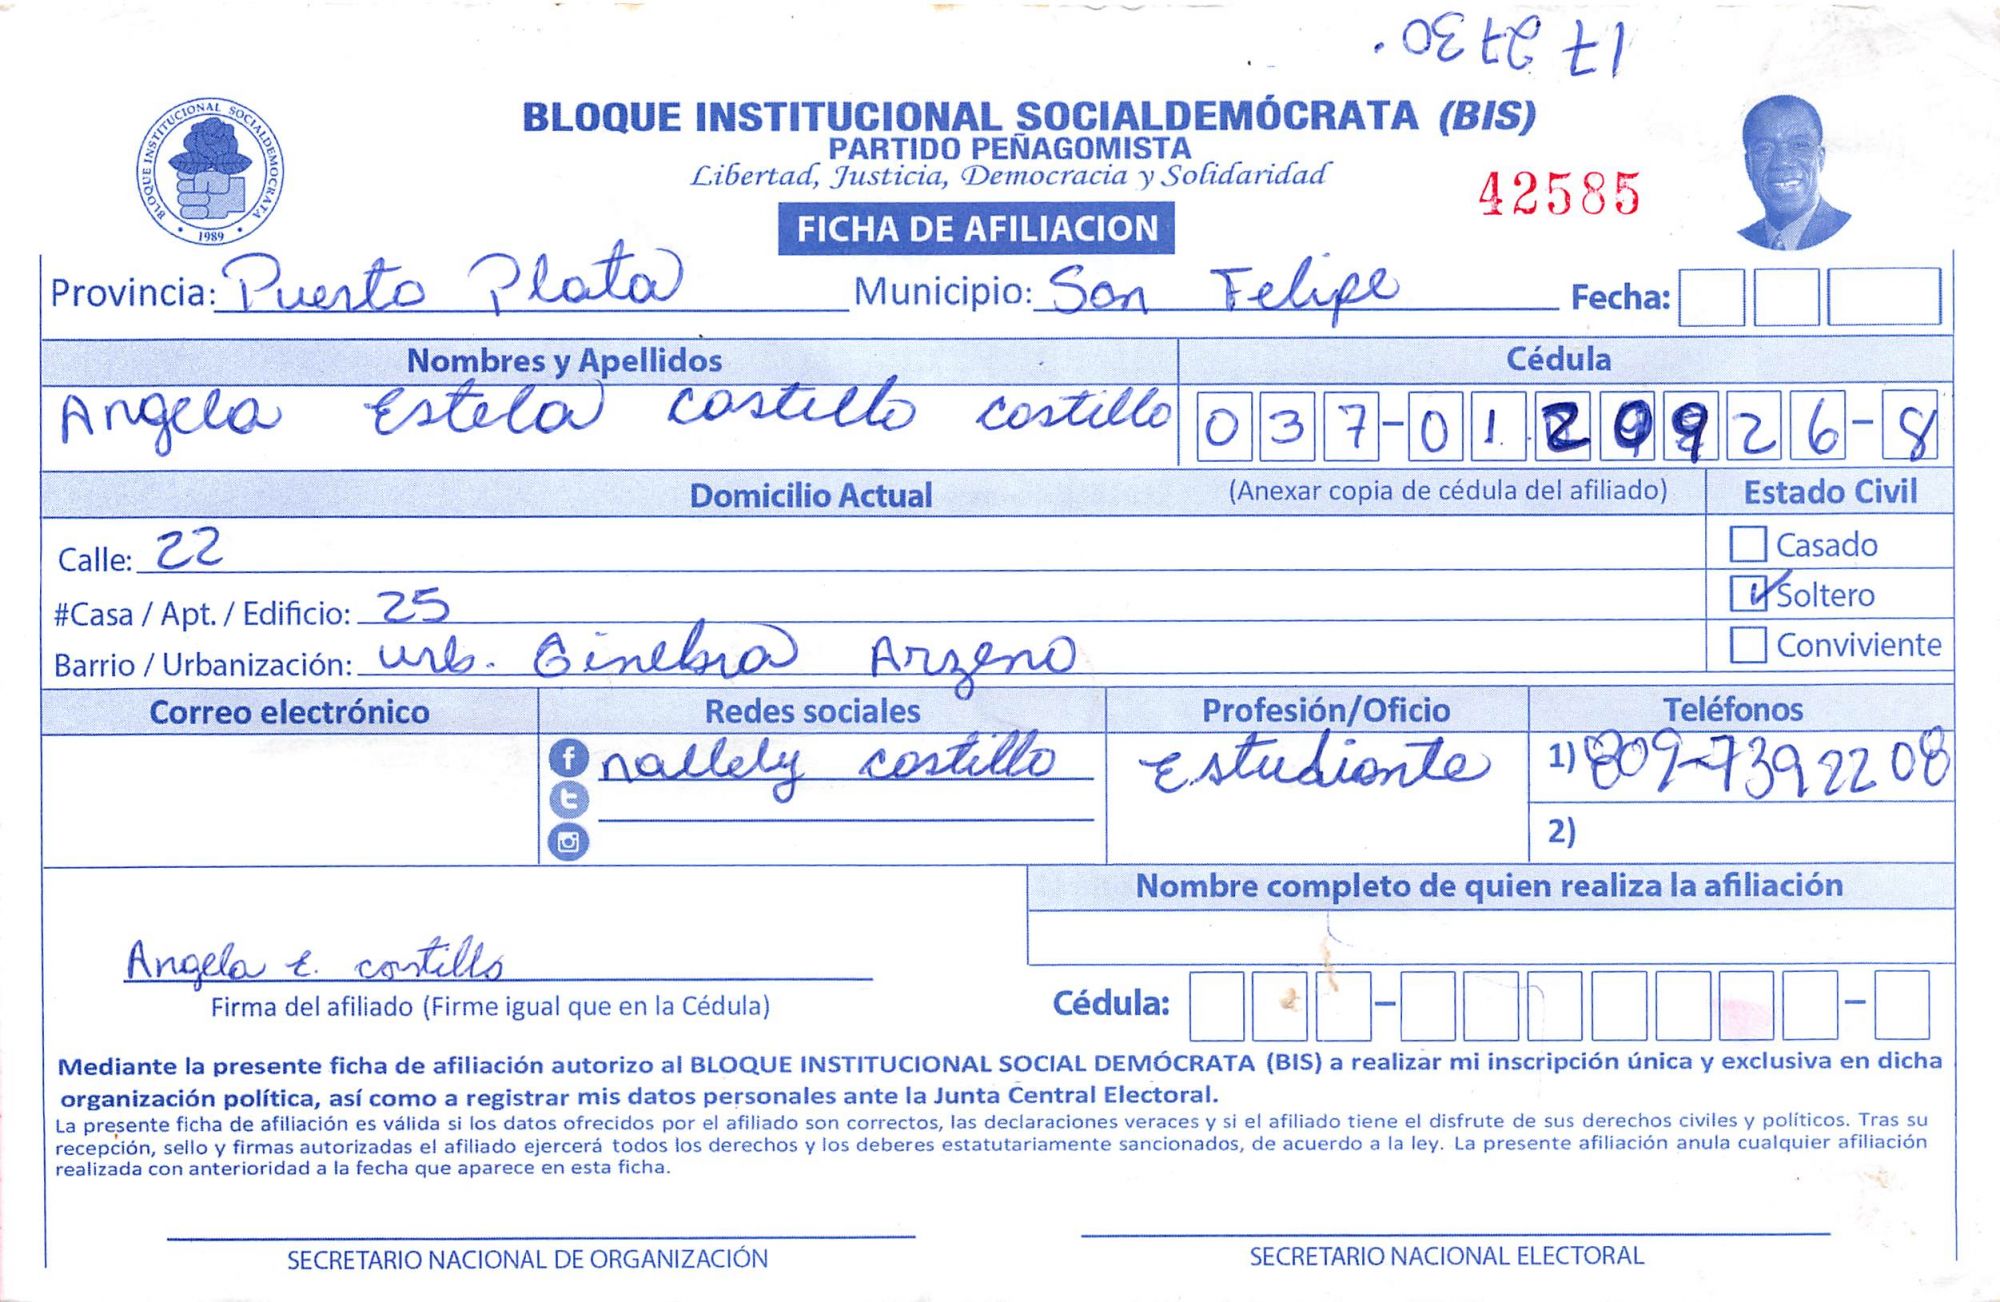 17 2730.
BLOQUE INSTITUCIONAL SOCIALDEMÓCRATA (BIS)
PARTIDO PEÑAGOMISTA
Libertad, Justicia, Democracia y Solidaridad
42585
BLOQUE INSTITUCIONAL SOCIALDEMOCRATA
1989
FICHA DE AFILIACION
Provincia: Puerto Plata Municipio: San Felipe Fecha:
Nombres y Apellidos Cédula
Angela Estela Castillo castillo 037-0120926-8
Domicilio Actual (Anexar copia de cédula del afiliado) Estado Civil
Calle: 22 Casado
#Casa / Apt. / Edificio: 25 Soltero
Barrio / Urbanización: urb. Ginebra Arzeno Conviviente
Correo electrónico Redes sociales Profesión/Oficio Teléfonos
nallely castillo Estudiante 1) 809-7392208
2)
Nombre completo de quien realiza la afiliación
Angela E. castillo
Firma del afiliado (Firme igual que en la Cédula) Cédula:
Mediante la presente ficha de afiliación autorizo al BLOQUE INSTITUCIONAL SOCIAL DEMÓCRATA (BIS) a realizar mi inscripción única y exclusiva en dicha
organización política, así como a registrar mis datos personales ante la Junta Central Electoral.
La presente ficha de afiliación es válida si los datos ofrecidos por el afiliado son correctos, las declaraciones veraces y si el afiliado tiene el disfrute de sus derechos civiles y políticos. Tras su
recepción, sello y firmas autorizadas el afiliado ejercerá todos los derechos y los deberes estatutariamente sancionados, de acuerdo a la ley. La presente afiliación anula cualquier afiliación
realizada con anterioridad a la fecha que aparece en esta ficha.
SECRETARIO NACIONAL DE ORGANIZACIÓN SECRETARIO NACIONAL ELECTORAL